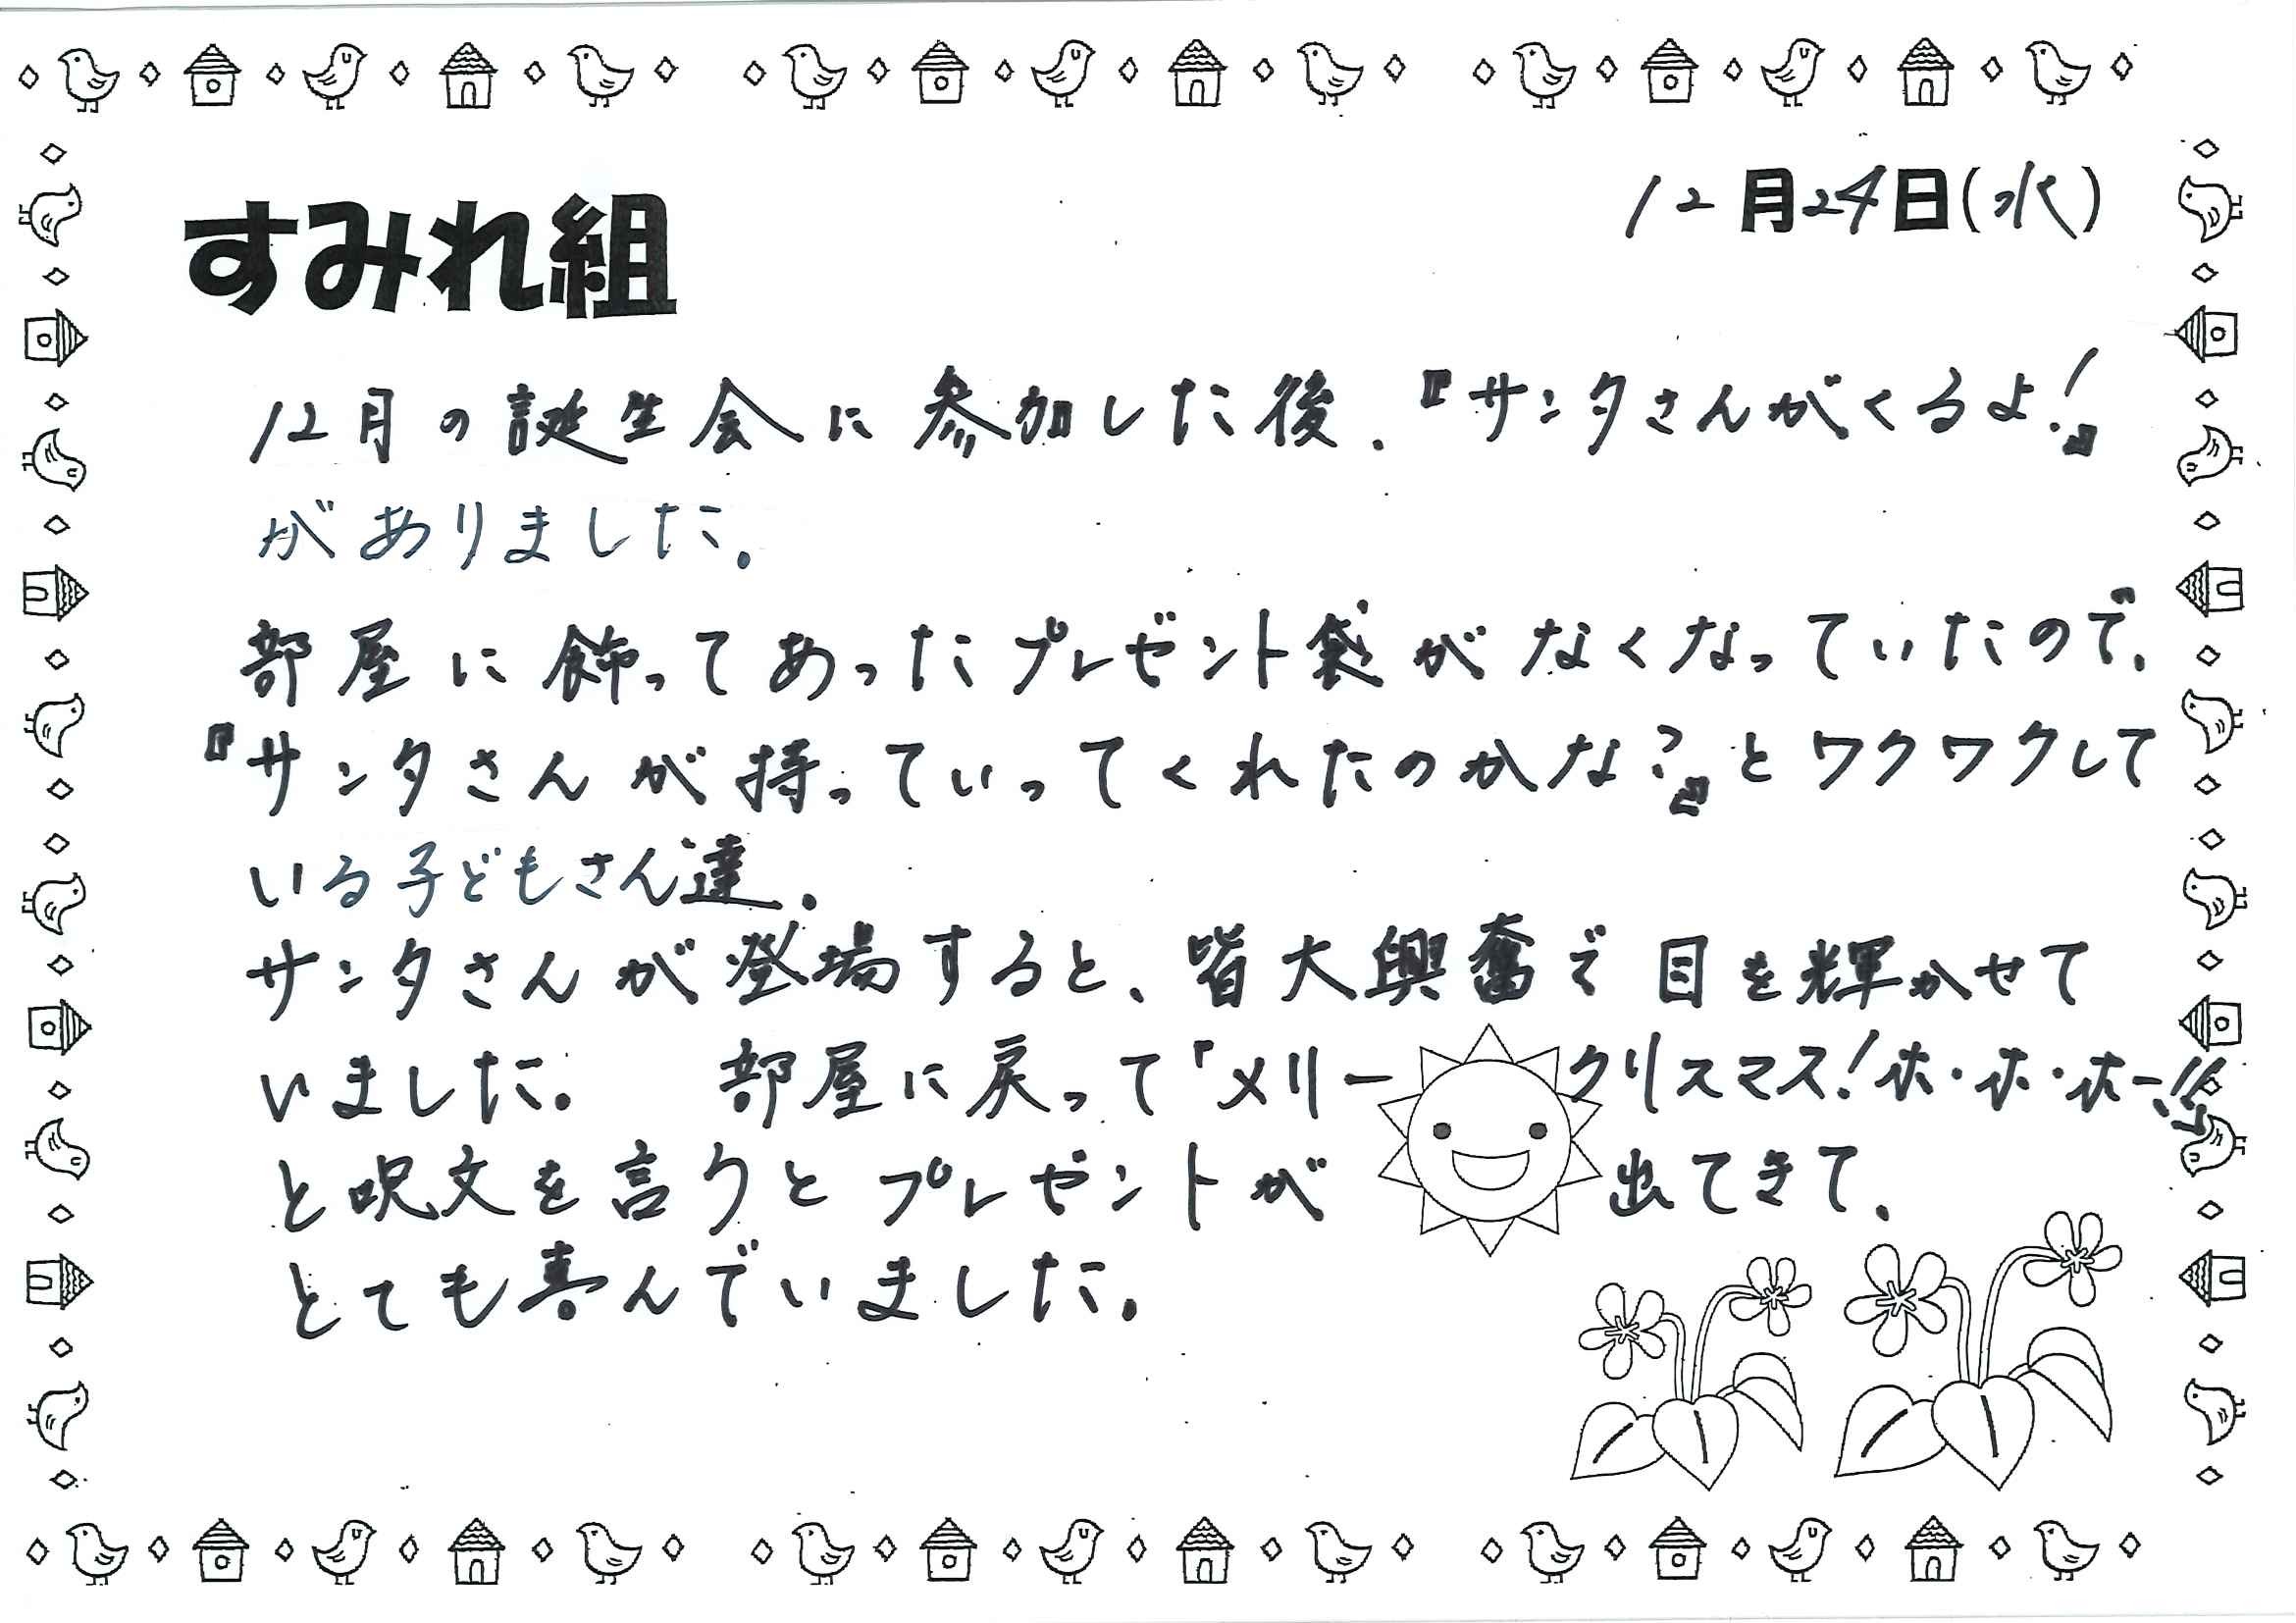 12月24日(水)
すみれ組
12月の誕生会に参加した後、『サンタさんがくるよ!』
がありました。
部屋に飾ってあったプレゼント袋がなくなっていたので、
『サンタさんが持っていってくれたのかな?』とワクワクして
いる子どもさん達。
サンタさんが登場すると、皆大興奮で目を輝かせて
いました。 部屋に戻って「メリークリスマス!ホ・ホ・ホー!!」
と呪文を言うとプレゼントが出てきて、
とても喜んでいました。